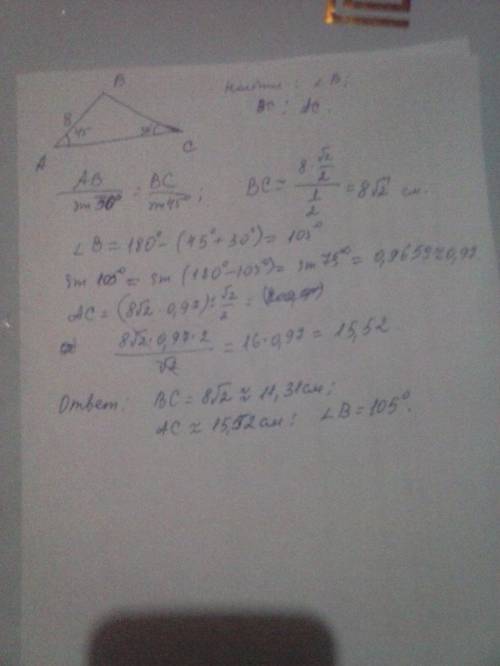 B
Найти: ∠B;
BC; AC.
8
45°
30°
A
C
AB/sin 30° = BC/sin 45°; BC = (8·√2/2)/(1/2) = 8√2 см.
∠B = 180° - (45° + 30°) = 105°
sin 105° = sin (180° - 105°) = sin 75° = 0,9659 ≈ 0,97
AC = (8√2 · 0,97) : √2/2 =
(8√2 · 0,97 · 2)/√2 = 16 · 0,97 = 15,52
Ответ: BC = 8√2 ≈ 11,31 см;
AC ≈ 15,52 см; ∠B = 105°.